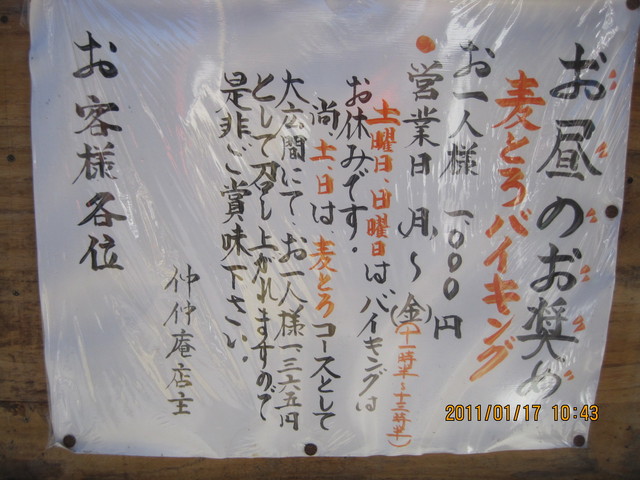 お昼のお奨め
麦とろバイキング
お一人様 一、〇〇〇円
営業日 月、～(金)
(十一時半～十三時半)
土曜日、日曜日はバイキングは
お休みです。
尚、土、日は、麦とろコースとして
大広間にて、お一人様一、三六五円
として召し上がれますので
是非ご賞味下さい。
仲仲庵店主
お客様各位
2011/01/17 10:43